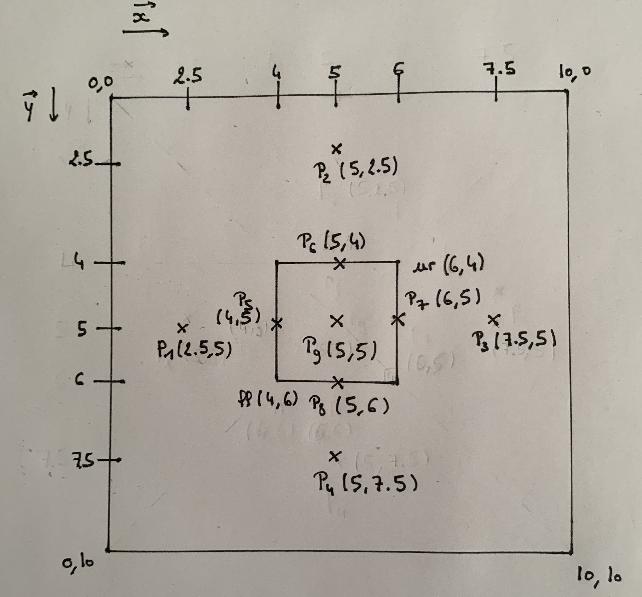 x
0,0 2.5 4 5 6 7.5 10,0
y
2.5
P2 (5,2.5)
4
P6 (5,4)
ur (6,4)
P5
(4,5)
P7 (6,5)
5
P1 (2.5,5)
P9 (5,5)
P3 (7.5,5)
6
(4,6)
P8 (5,6)
7.5
P4 (5,7.5)
0,10
10,10